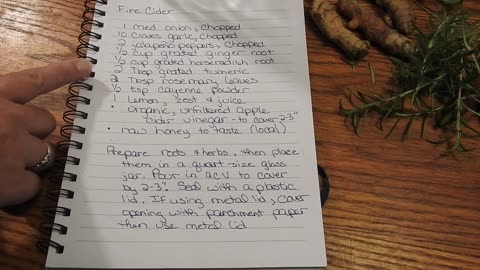 Fire Cider
1 med. onion, chopped
10 cloves garlic, chopped
2 jalapeño peppers, chopped
1/2 cup grated ginger root
1/2 cup grated horseradish root
2 Tbsp grated turmeric
2 Tbsp rosemary leaves
1/2 tsp cayenne powder
1 lemon, zest & juice
• organic, unfiltered apple
cider vinegar - to cover 2-3"
• raw honey to taste (local)
Prepare roots & herbs, then place
them in a quart-size glass
jar. Pour in ACV to cover
by 2-3". Seal with a plastic
lid. If using metal lid, cover
opening with parchment paper
then use metal lid